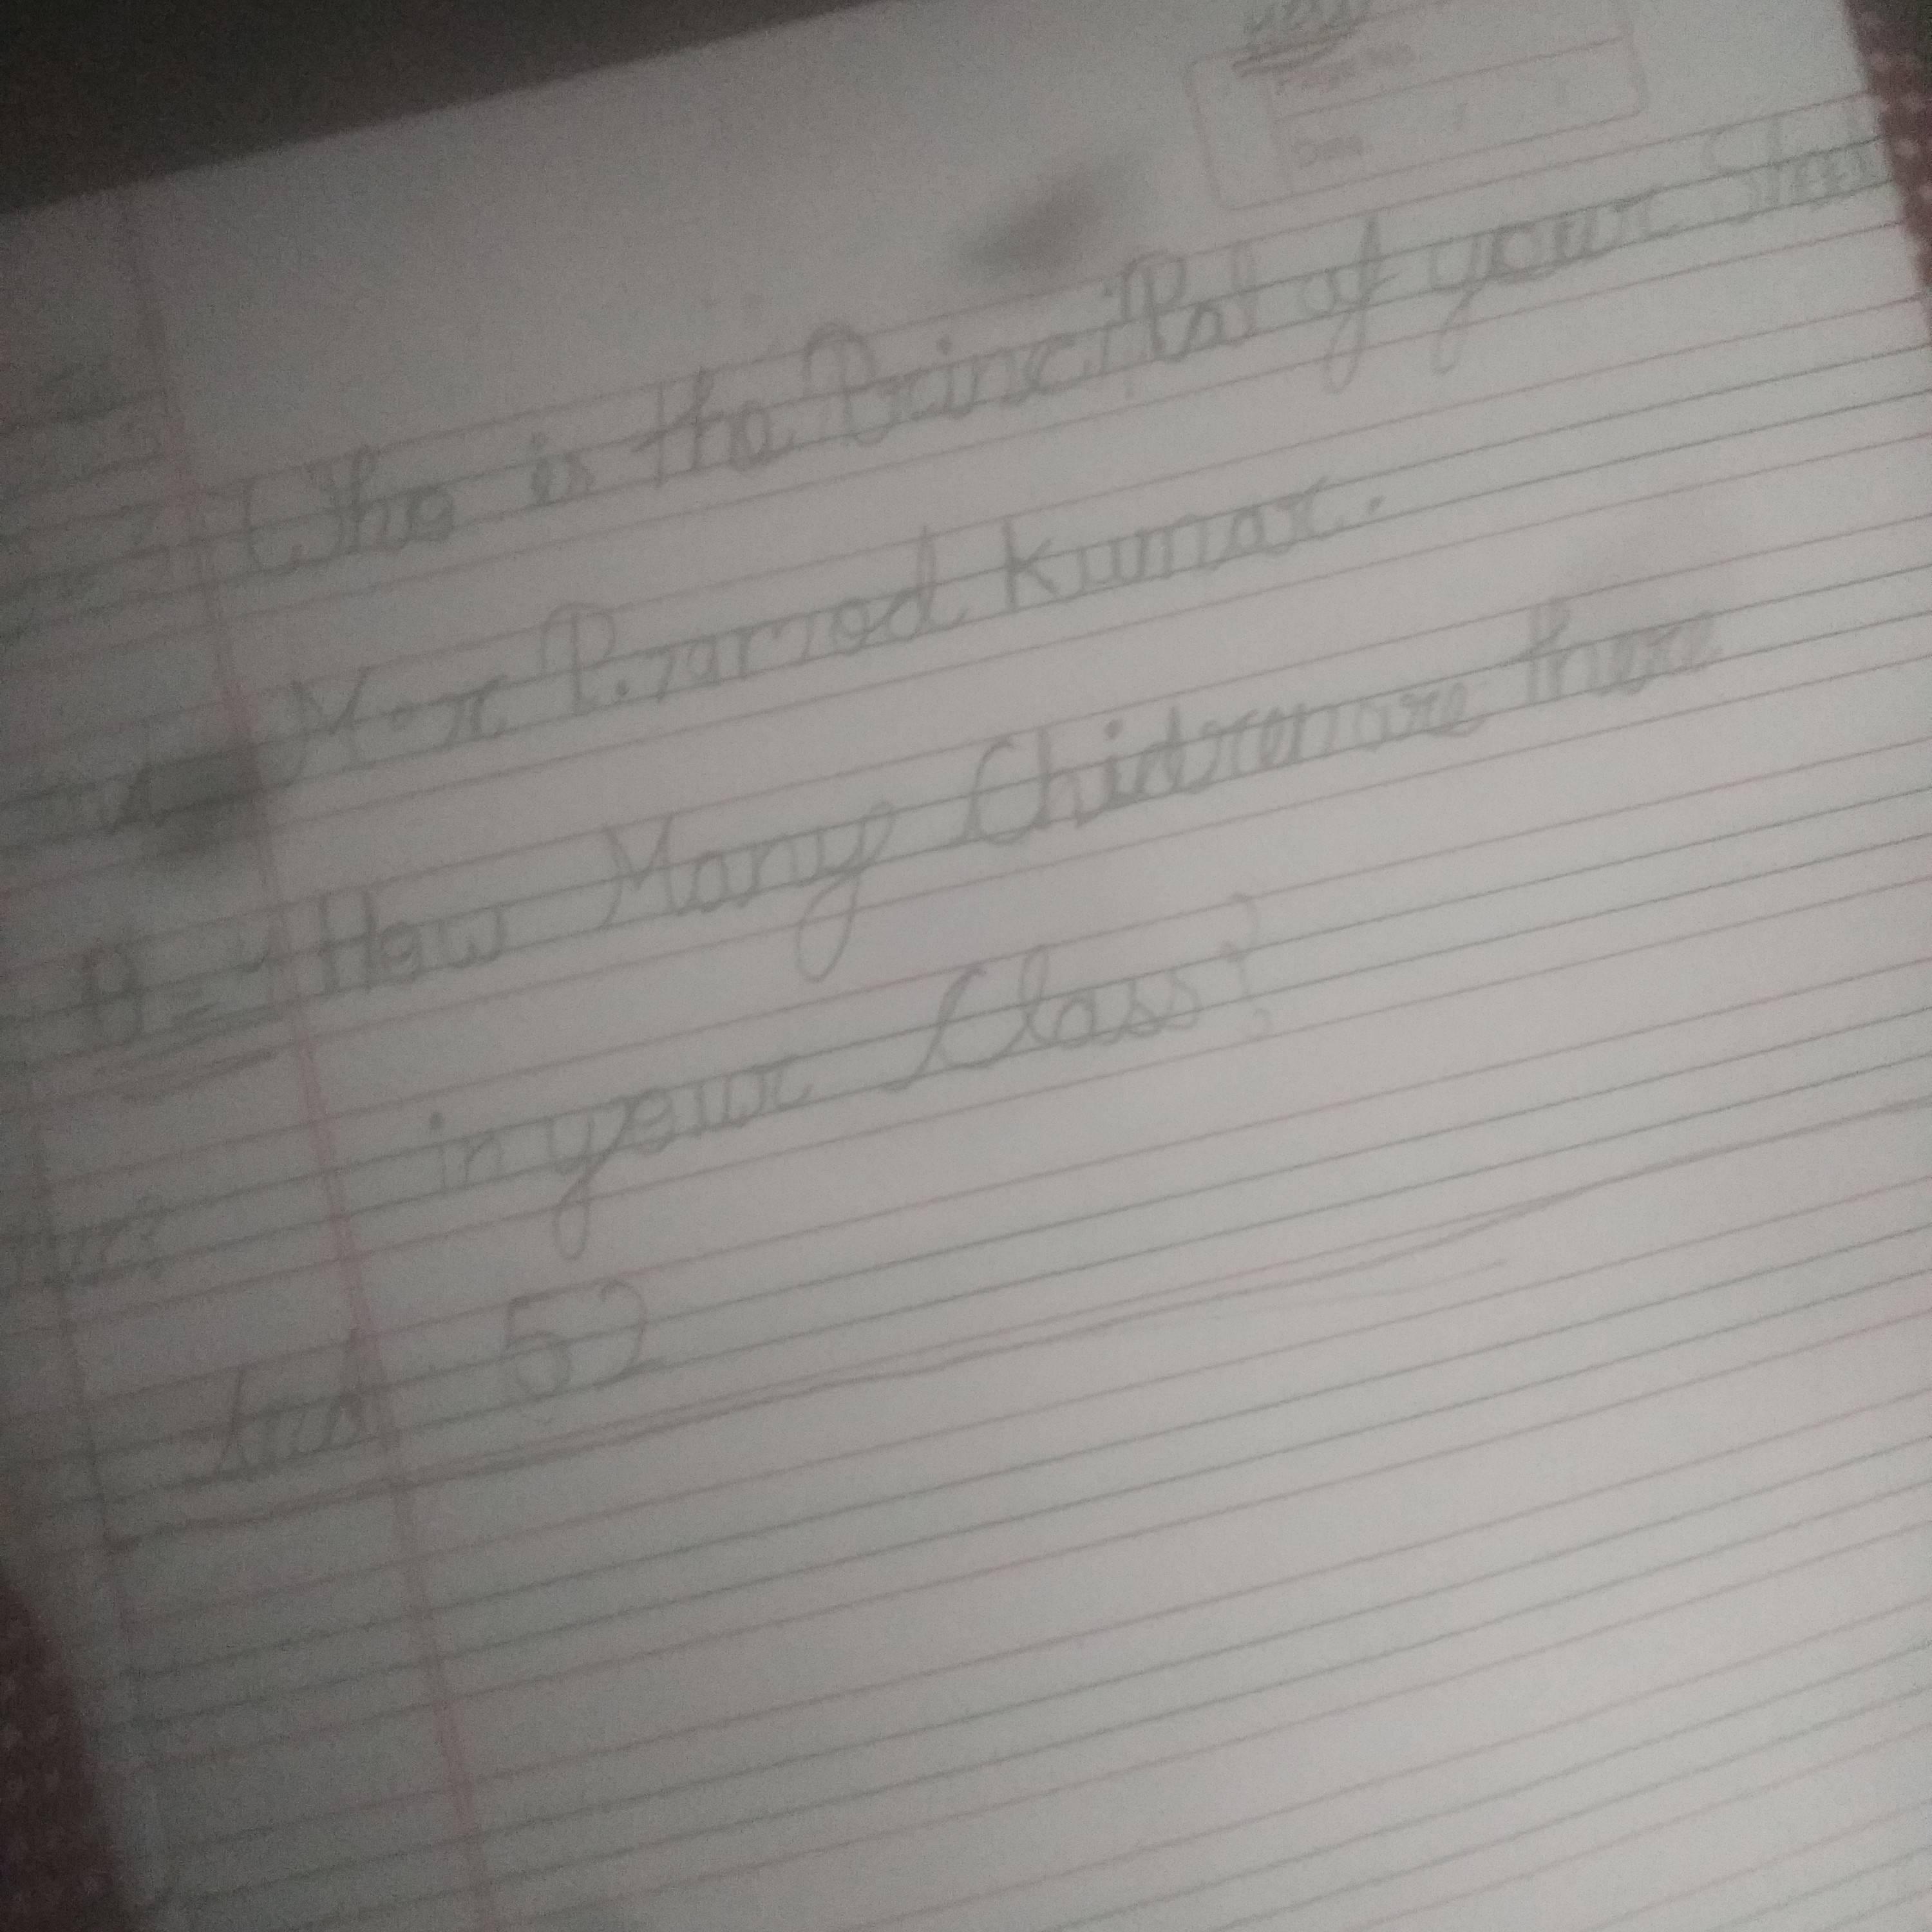 Page No.
Date
Who is the PrinciPal of your
Mr P. Kumar.
How Many Chidren are there
in your Class?
Ans 52